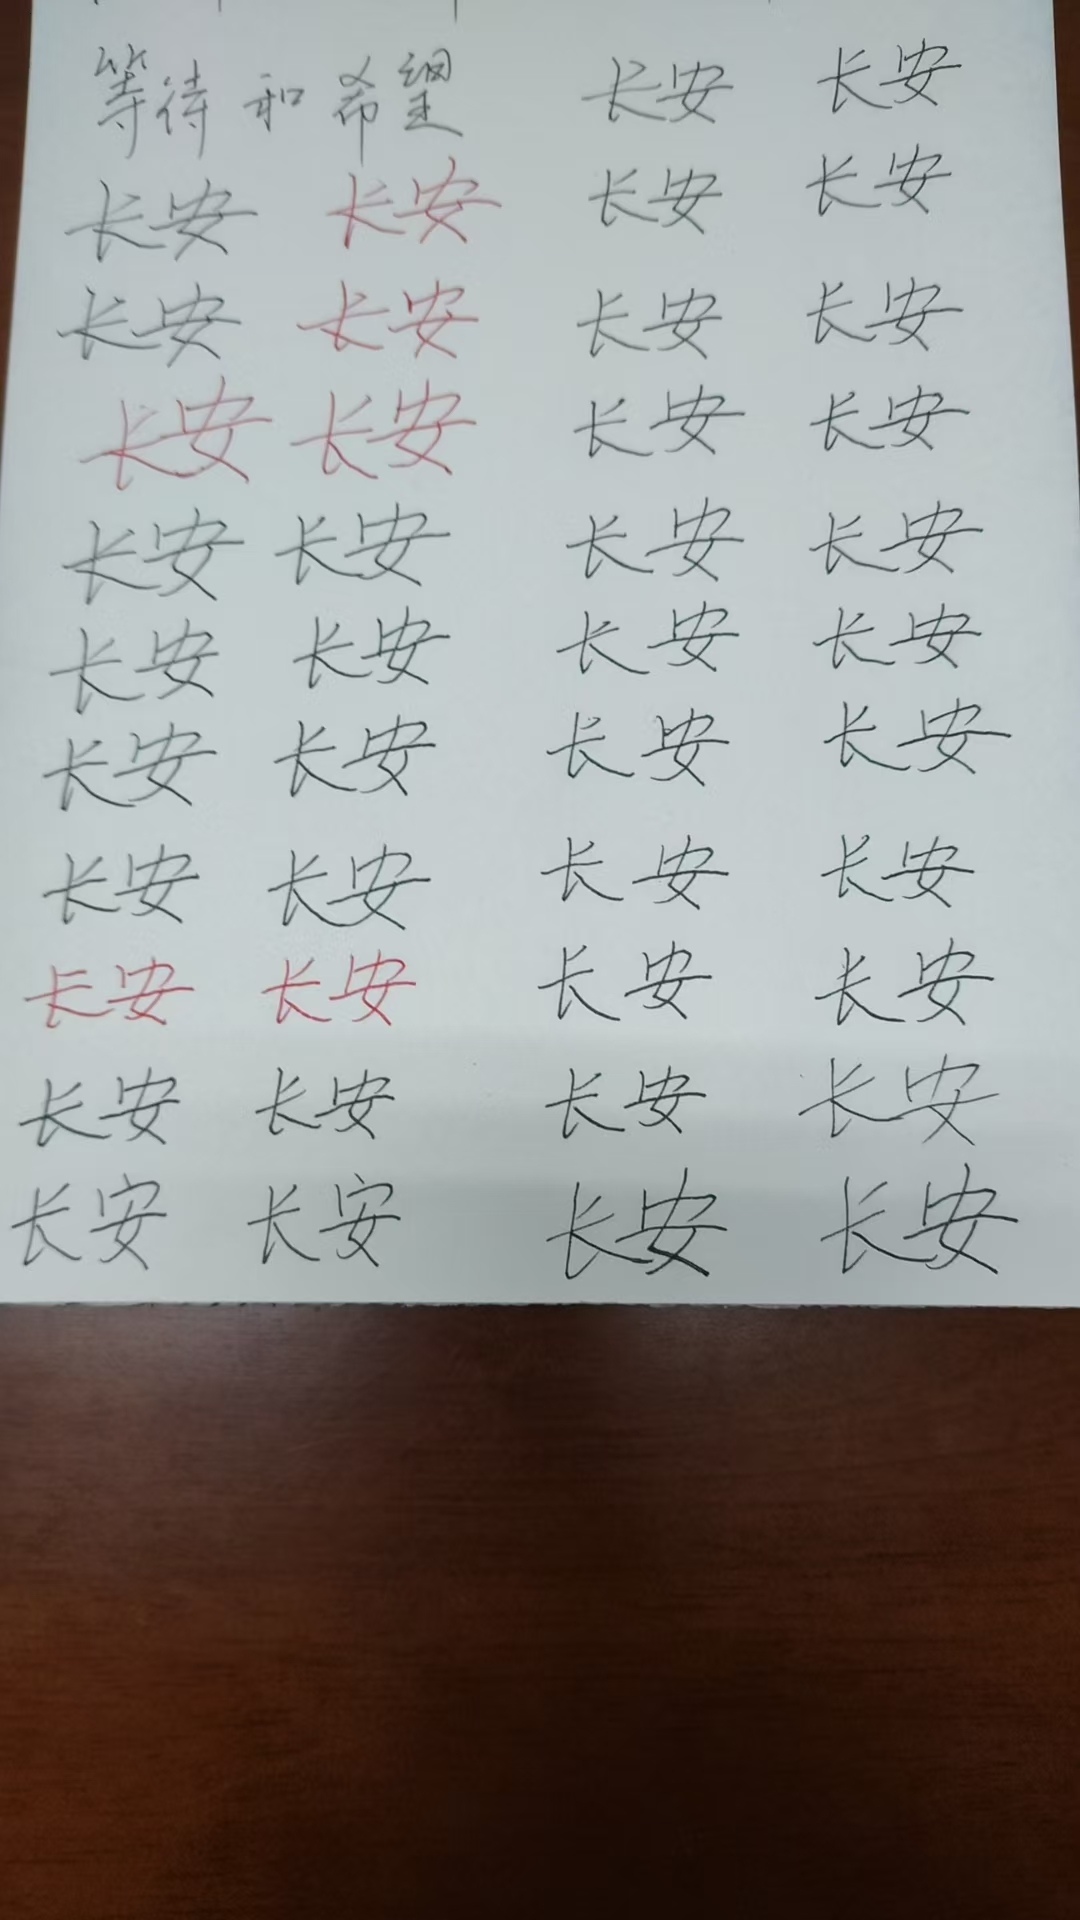 等待和希望 长安 长安
长安 长安 长安 长安
长安 长安 长安 长安
长安 长安 长安 长安
长安 长安 长安 长安
长安 长安 长安 长安
长安 长安 长安 长安
长安 长安 长安 长安
长安 长安 长安 长安
长安 长安 长安 长安
长安 长安 长安 长安